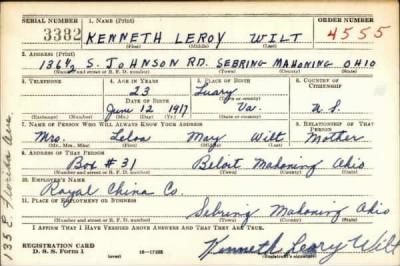 SERIAL NUMBER 1. NAME (Print) ORDER NUMBER
3382 KENNETH LEROY WILT 4555
(First) (Middle) (Last)
2. ADDRESS (Print)
136½ S. JOHNSON RD. SEBRING MAHONING OHIO
(Number and street or R. F. D. number) (Town) (County) (State)
3. TELEPHONE 4. AGE IN YEARS 5. PLACE OF BIRTH 6. COUNTRY OF CITIZENSHIP
23 Luary
DATE OF BIRTH (Town or county)
June 12 1917 Va. U.S.
(Exchange) (Number) (Mo.) (Day) (Yr.) (State or country)
7. NAME OF PERSON WHO WILL ALWAYS KNOW YOUR ADDRESS 8. RELATIONSHIP OF THAT PERSON
Mrs. Leloa Mary Wilt Mother
(Mr., Mrs., Miss) (First) (Middle) (Last)
9. ADDRESS OF THAT PERSON
Box #31 Beloit Mahoning Ohio
(Number and street or R. F. D. number) (Town) (County) (State)
10. EMPLOYER'S NAME
Royal China Co
11. PLACE OF EMPLOYMENT OR BUSINESS
Sebring Mahoning Ohio
(Number and street or R. F. D. number) (Town) (County) (State)
I AFFIRM THAT I HAVE VERIFIED ABOVE ANSWERS AND THAT THEY ARE TRUE.
REGISTRATION CARD
D. S. S. Form 1 (over) Kenneth Leroy Wilt
135 E Florida Ave